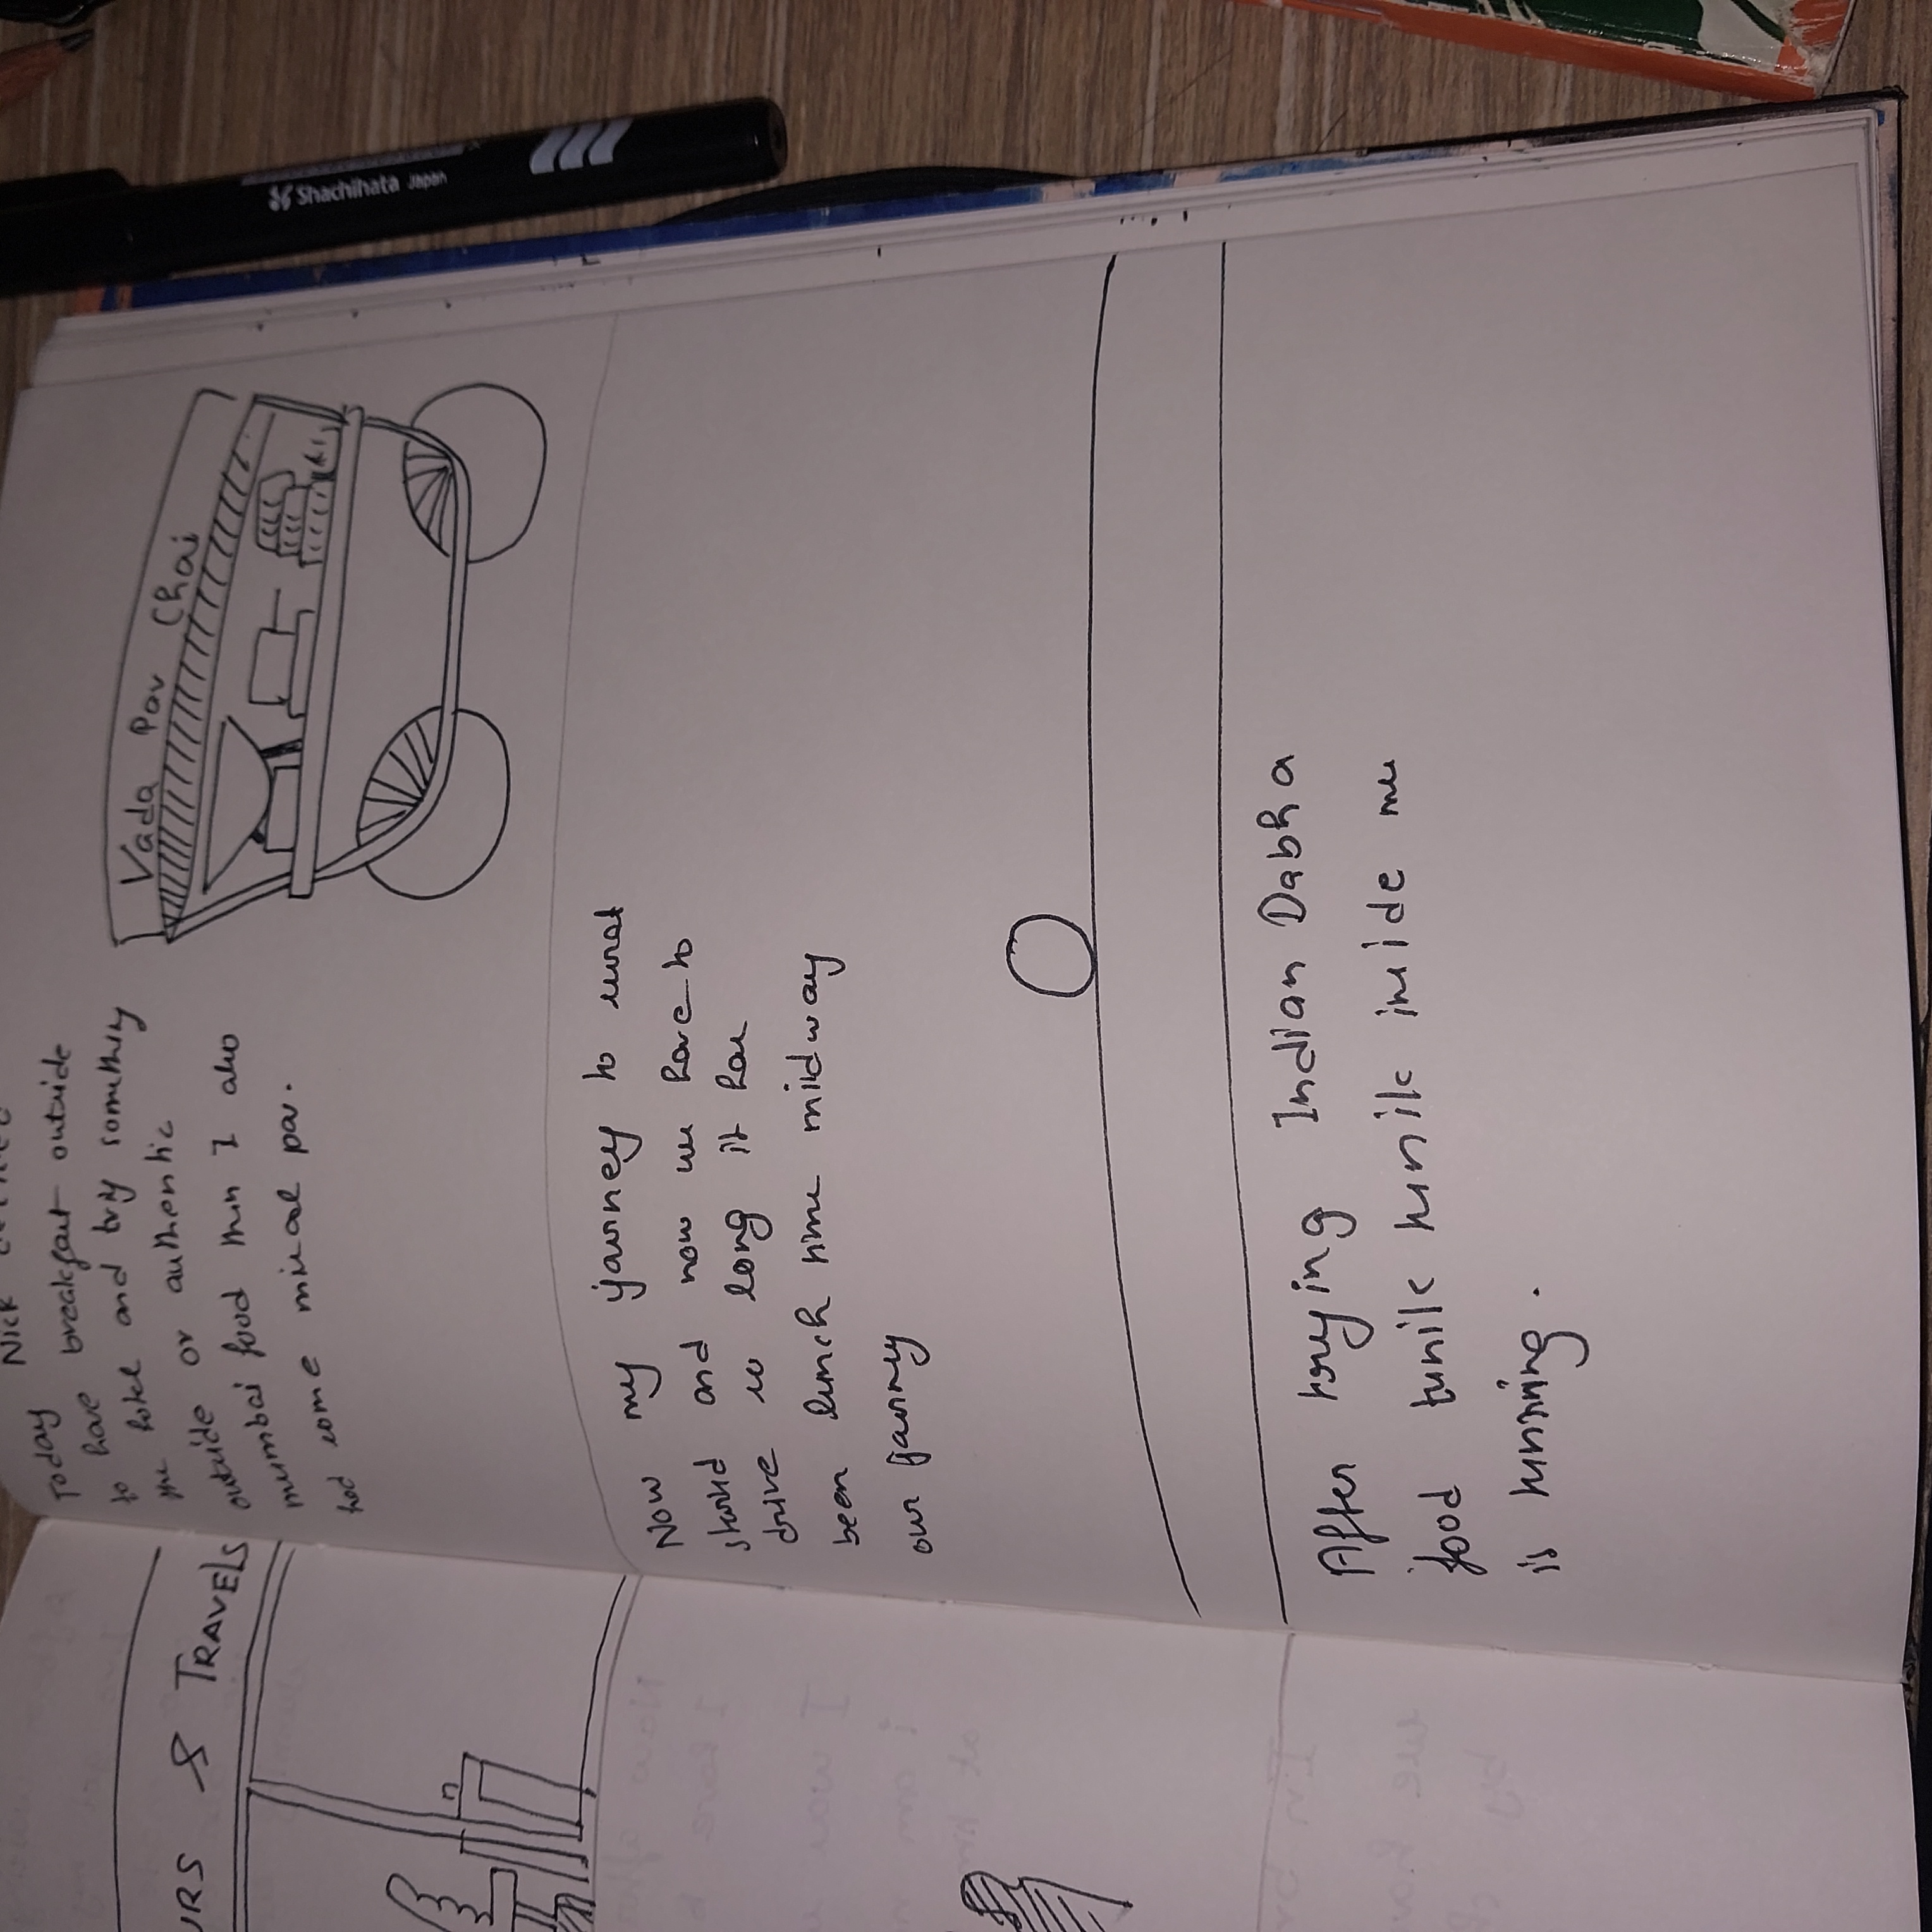 URS & TRAVELS
Today Nick
to have breakfast outside
the hotel and try something
outside or authentic
mumbai food then I also
had some misal pav.
Vada Pav Chai
Now my journey to surat
started and now we have to
drive so long it has
been lunch time midway
our journey
After trying Indian Dabha
food tunik tunik inside me
is running.
Shachihata Japan